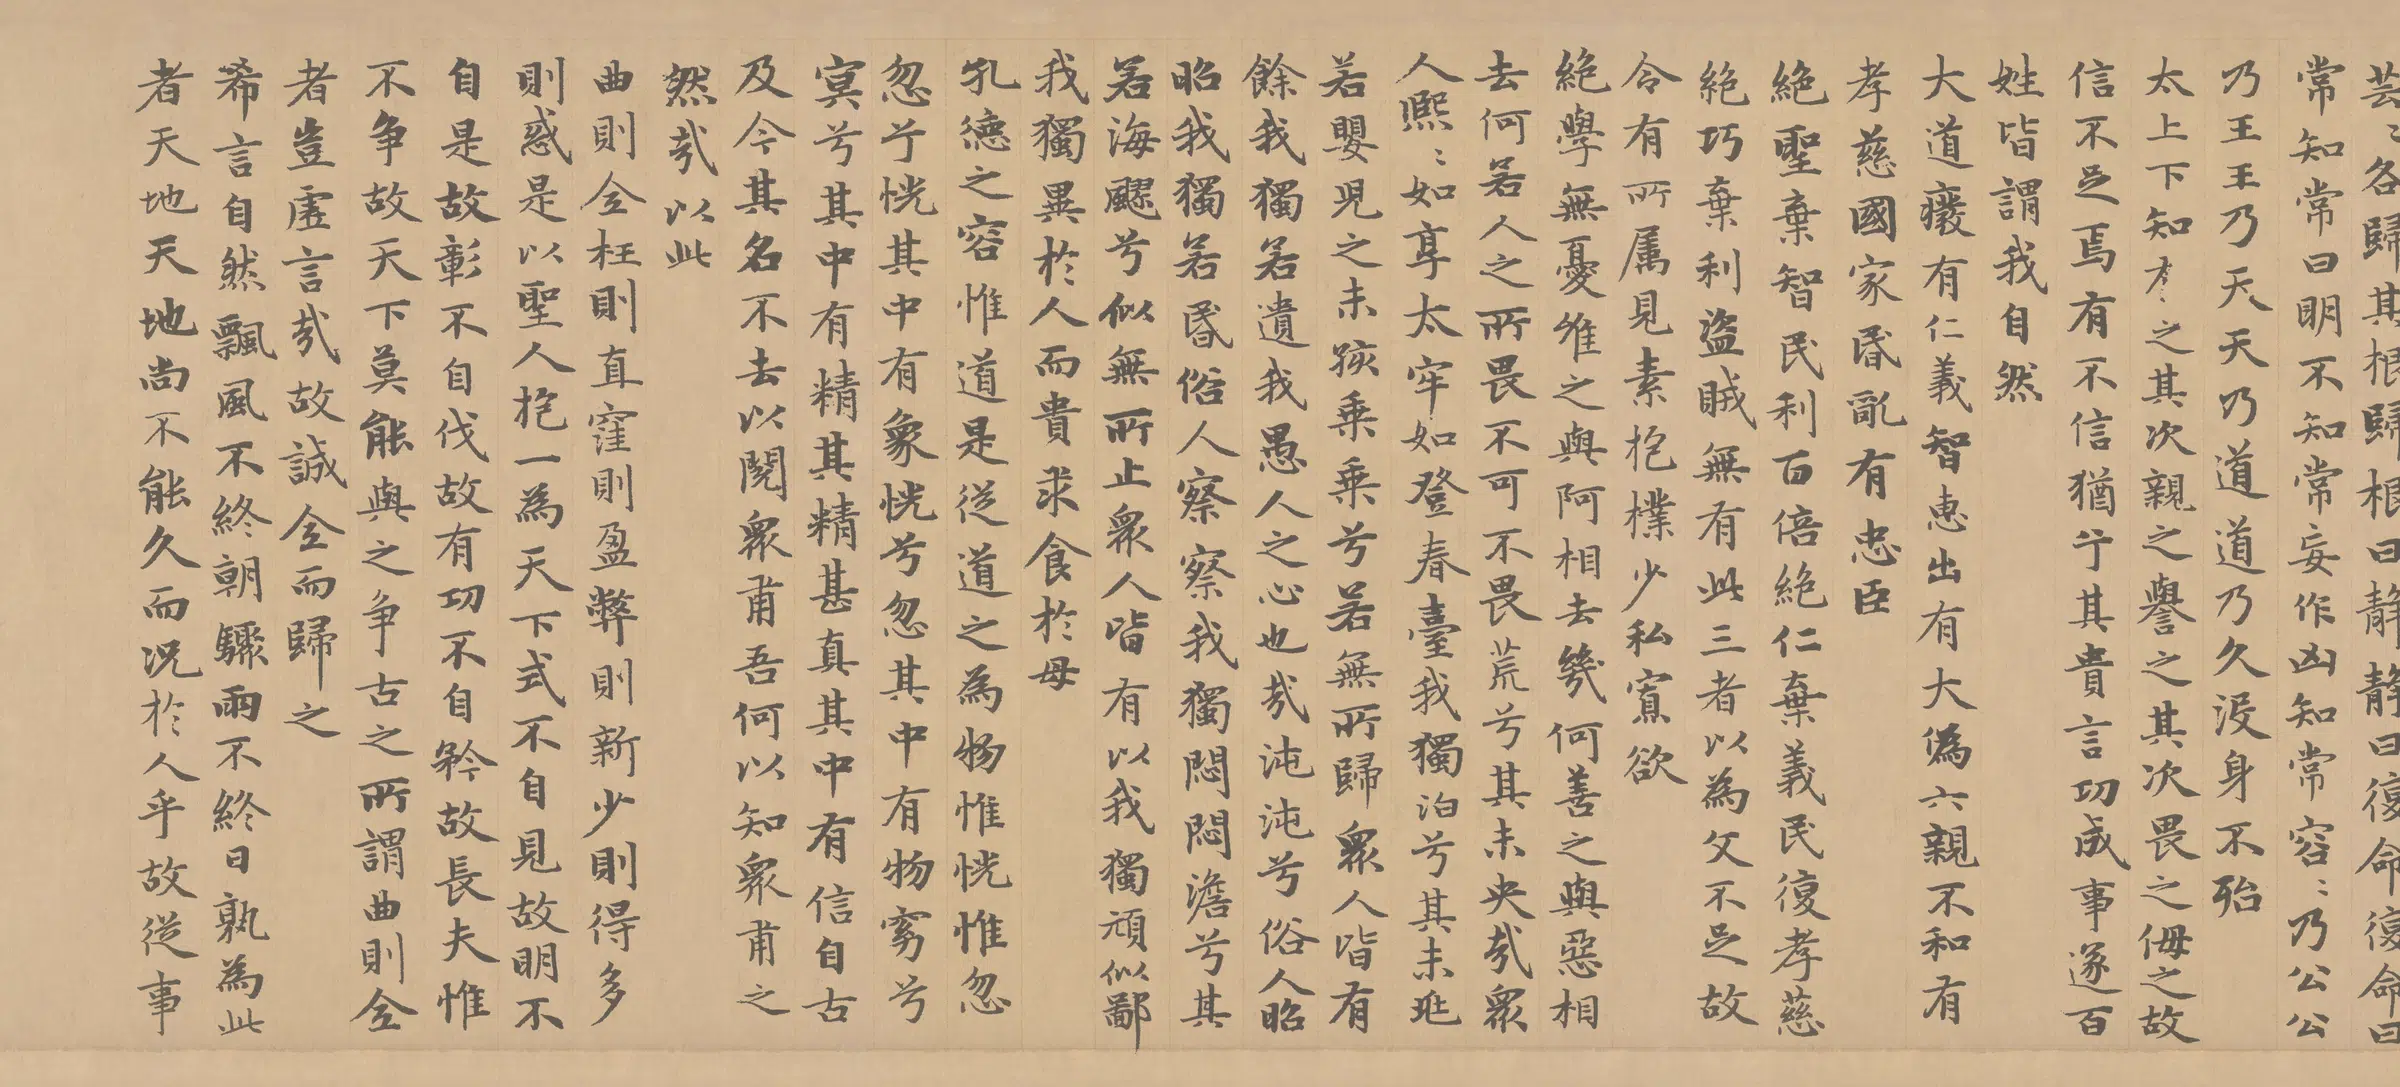 芸〻各歸其根歸根曰静静曰復命復命曰
常知常曰明不知常妄作凶知常容〻乃公公
乃王王乃天天乃道道乃久沒身不殆
太上下知有之其次親之譽之其次畏之侮之故
信不足焉有不信猶兮其貴言功成事遂百
姓皆謂我自然
大道癈有仁義智惠出有大偽六親不和有
孝慈國家昏亂有忠臣
絶聖棄智民利百倍絶仁棄義民復孝慈
絶巧棄利盜賊無有此三者以為文不足故
令有所属見素抱樸少私寡欲
絶學無憂唯之與阿相去幾何善之與惡相
去何若人之所畏不可不畏荒兮其未央哉衆
人熈〻如享太牢如登春臺我獨泊兮其未兆
若嬰兒之未孩乗乗兮若無所歸衆人皆有
餘我獨若遺我愚人之心也哉沌沌兮俗人昭
昭我獨若昏俗人察察我獨悶悶澹兮其
若海飂兮似無所止衆人皆有以我獨頑似鄙
我獨異於人而貴求食於母
孔德之容惟道是従道之為物惟恍惟忽
忽兮恍其中有象恍兮忽其中有物窈兮
冥兮其中有精其精甚真其中有信自古
及今其名不去以閱衆甫吾何以知衆甫之
然哉以此
曲則全枉則直窪則盈弊則新少則得多
則惑是以聖人抱一為天下式不自見故明不
自是故彰不自伐故有功不自矜故長夫惟
不争故天下莫能與之争古之所謂曲則全
者豈虛言哉故誠全而歸之
希言自然飄風不終朝驟雨不終日孰為此
者天地天地尚不能久而況於人乎故従事